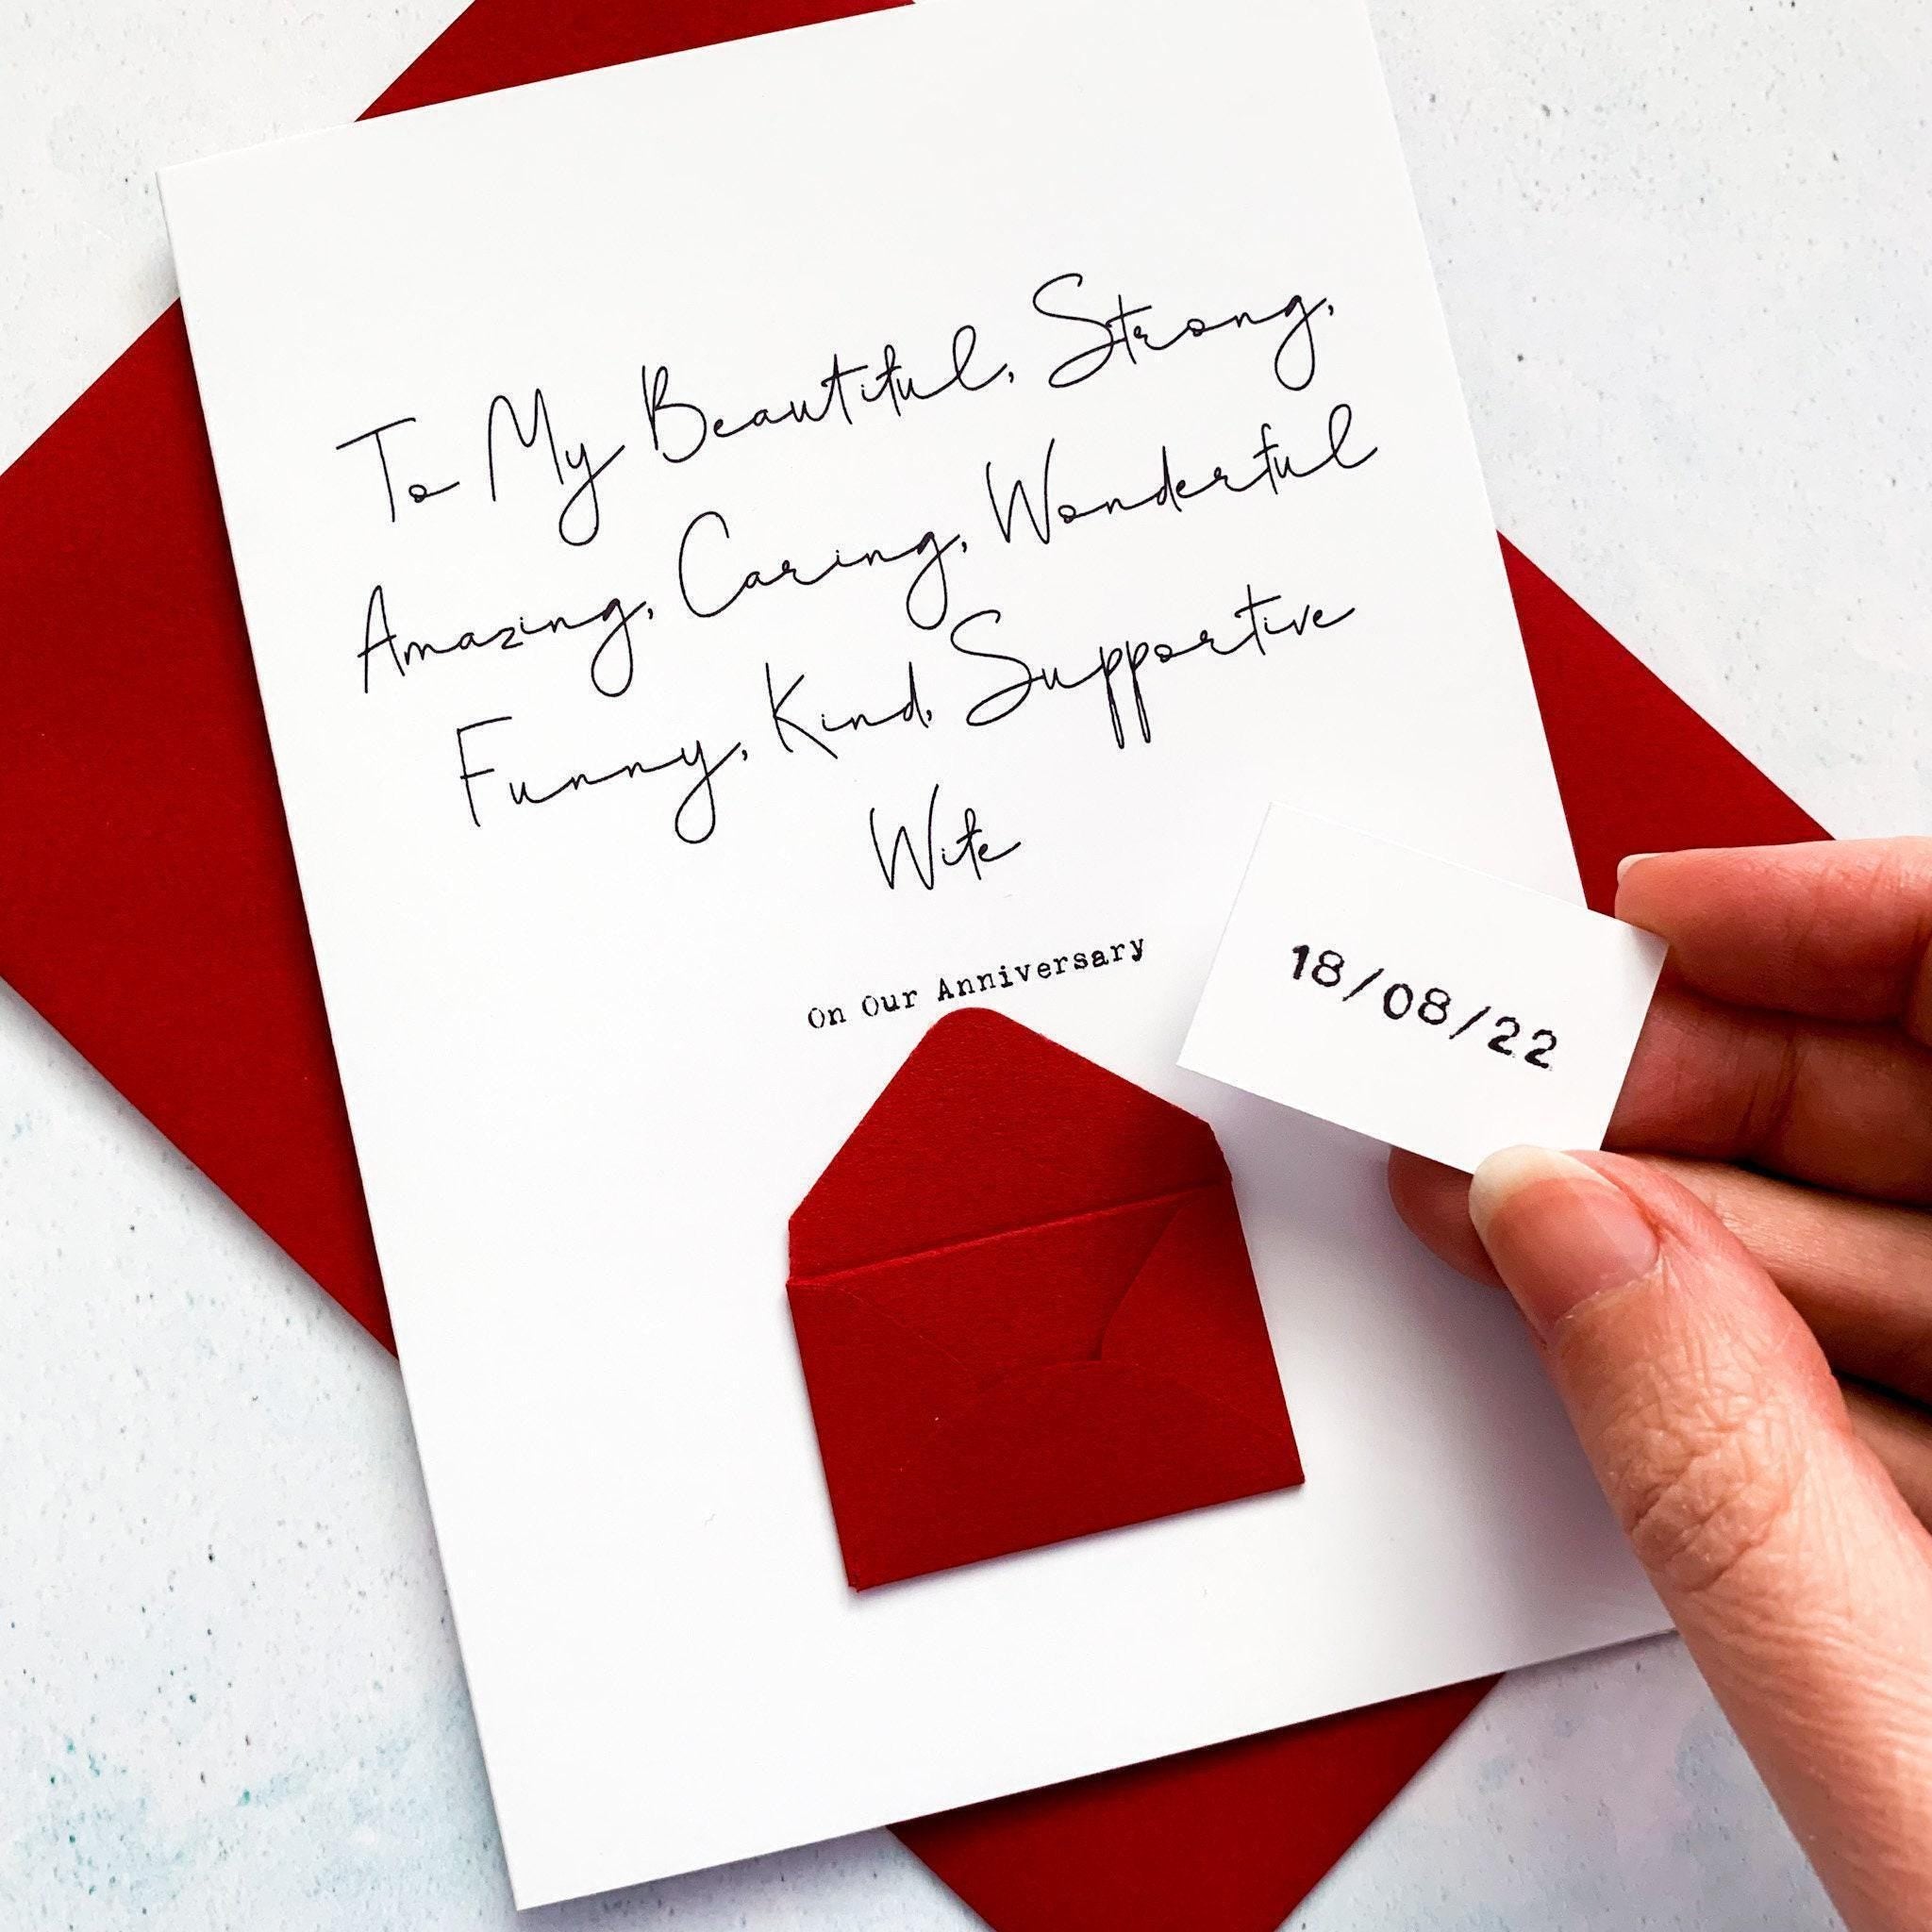 To My Beautiful, Strong,
Amazing, Caring, Wonderful
Funny, Kind, Supportive
Wife
On Our Anniversary
18/08/22